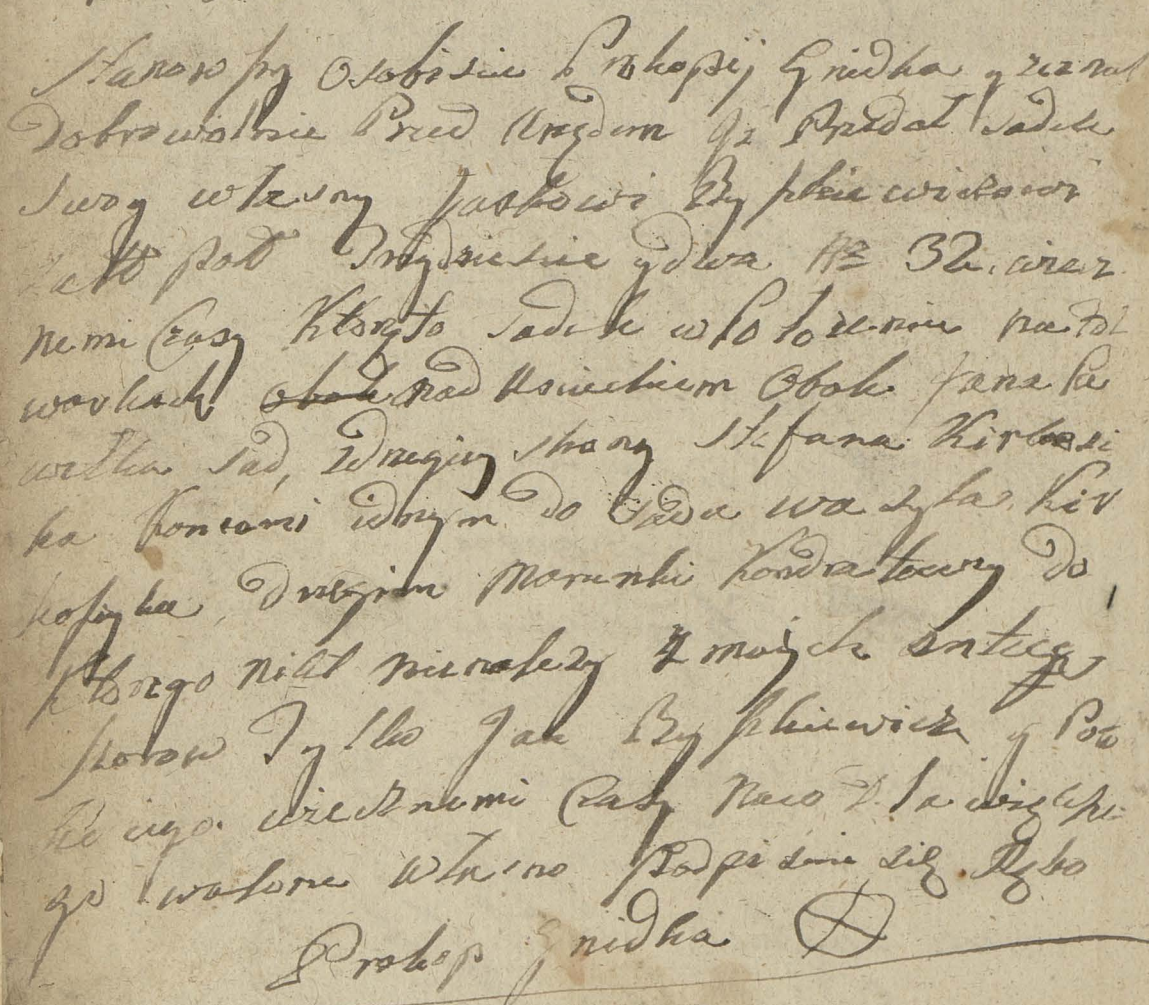 Stanowszy Osobiscie Prokopij Gnidka y zeznał
Dobrowolnie Pried Urzędem Jż Przedał Sadek
Swoy własny Jaskowi Byszkiewiczowi
za zł poł Trzydziescie y dwa Nr 32 wiecz
nemi Czasy Ktory to Sadek w Położeniu na fol
warkach nad Usieckiem Obok Jana Pa
wełka Sad, zdrugiey strony Stefana
ka koncami ednym do Sadu wasyla Kir
drugim Morunki Kondratowey do
ktorego nikt nienależy z moych
storow Tylko Jan Byszkiewicz y Poto
ki iego wiecznemi Czasy Naco dla większy
go waloru własno Podpisuie się Ręko
Prokop Gnidka